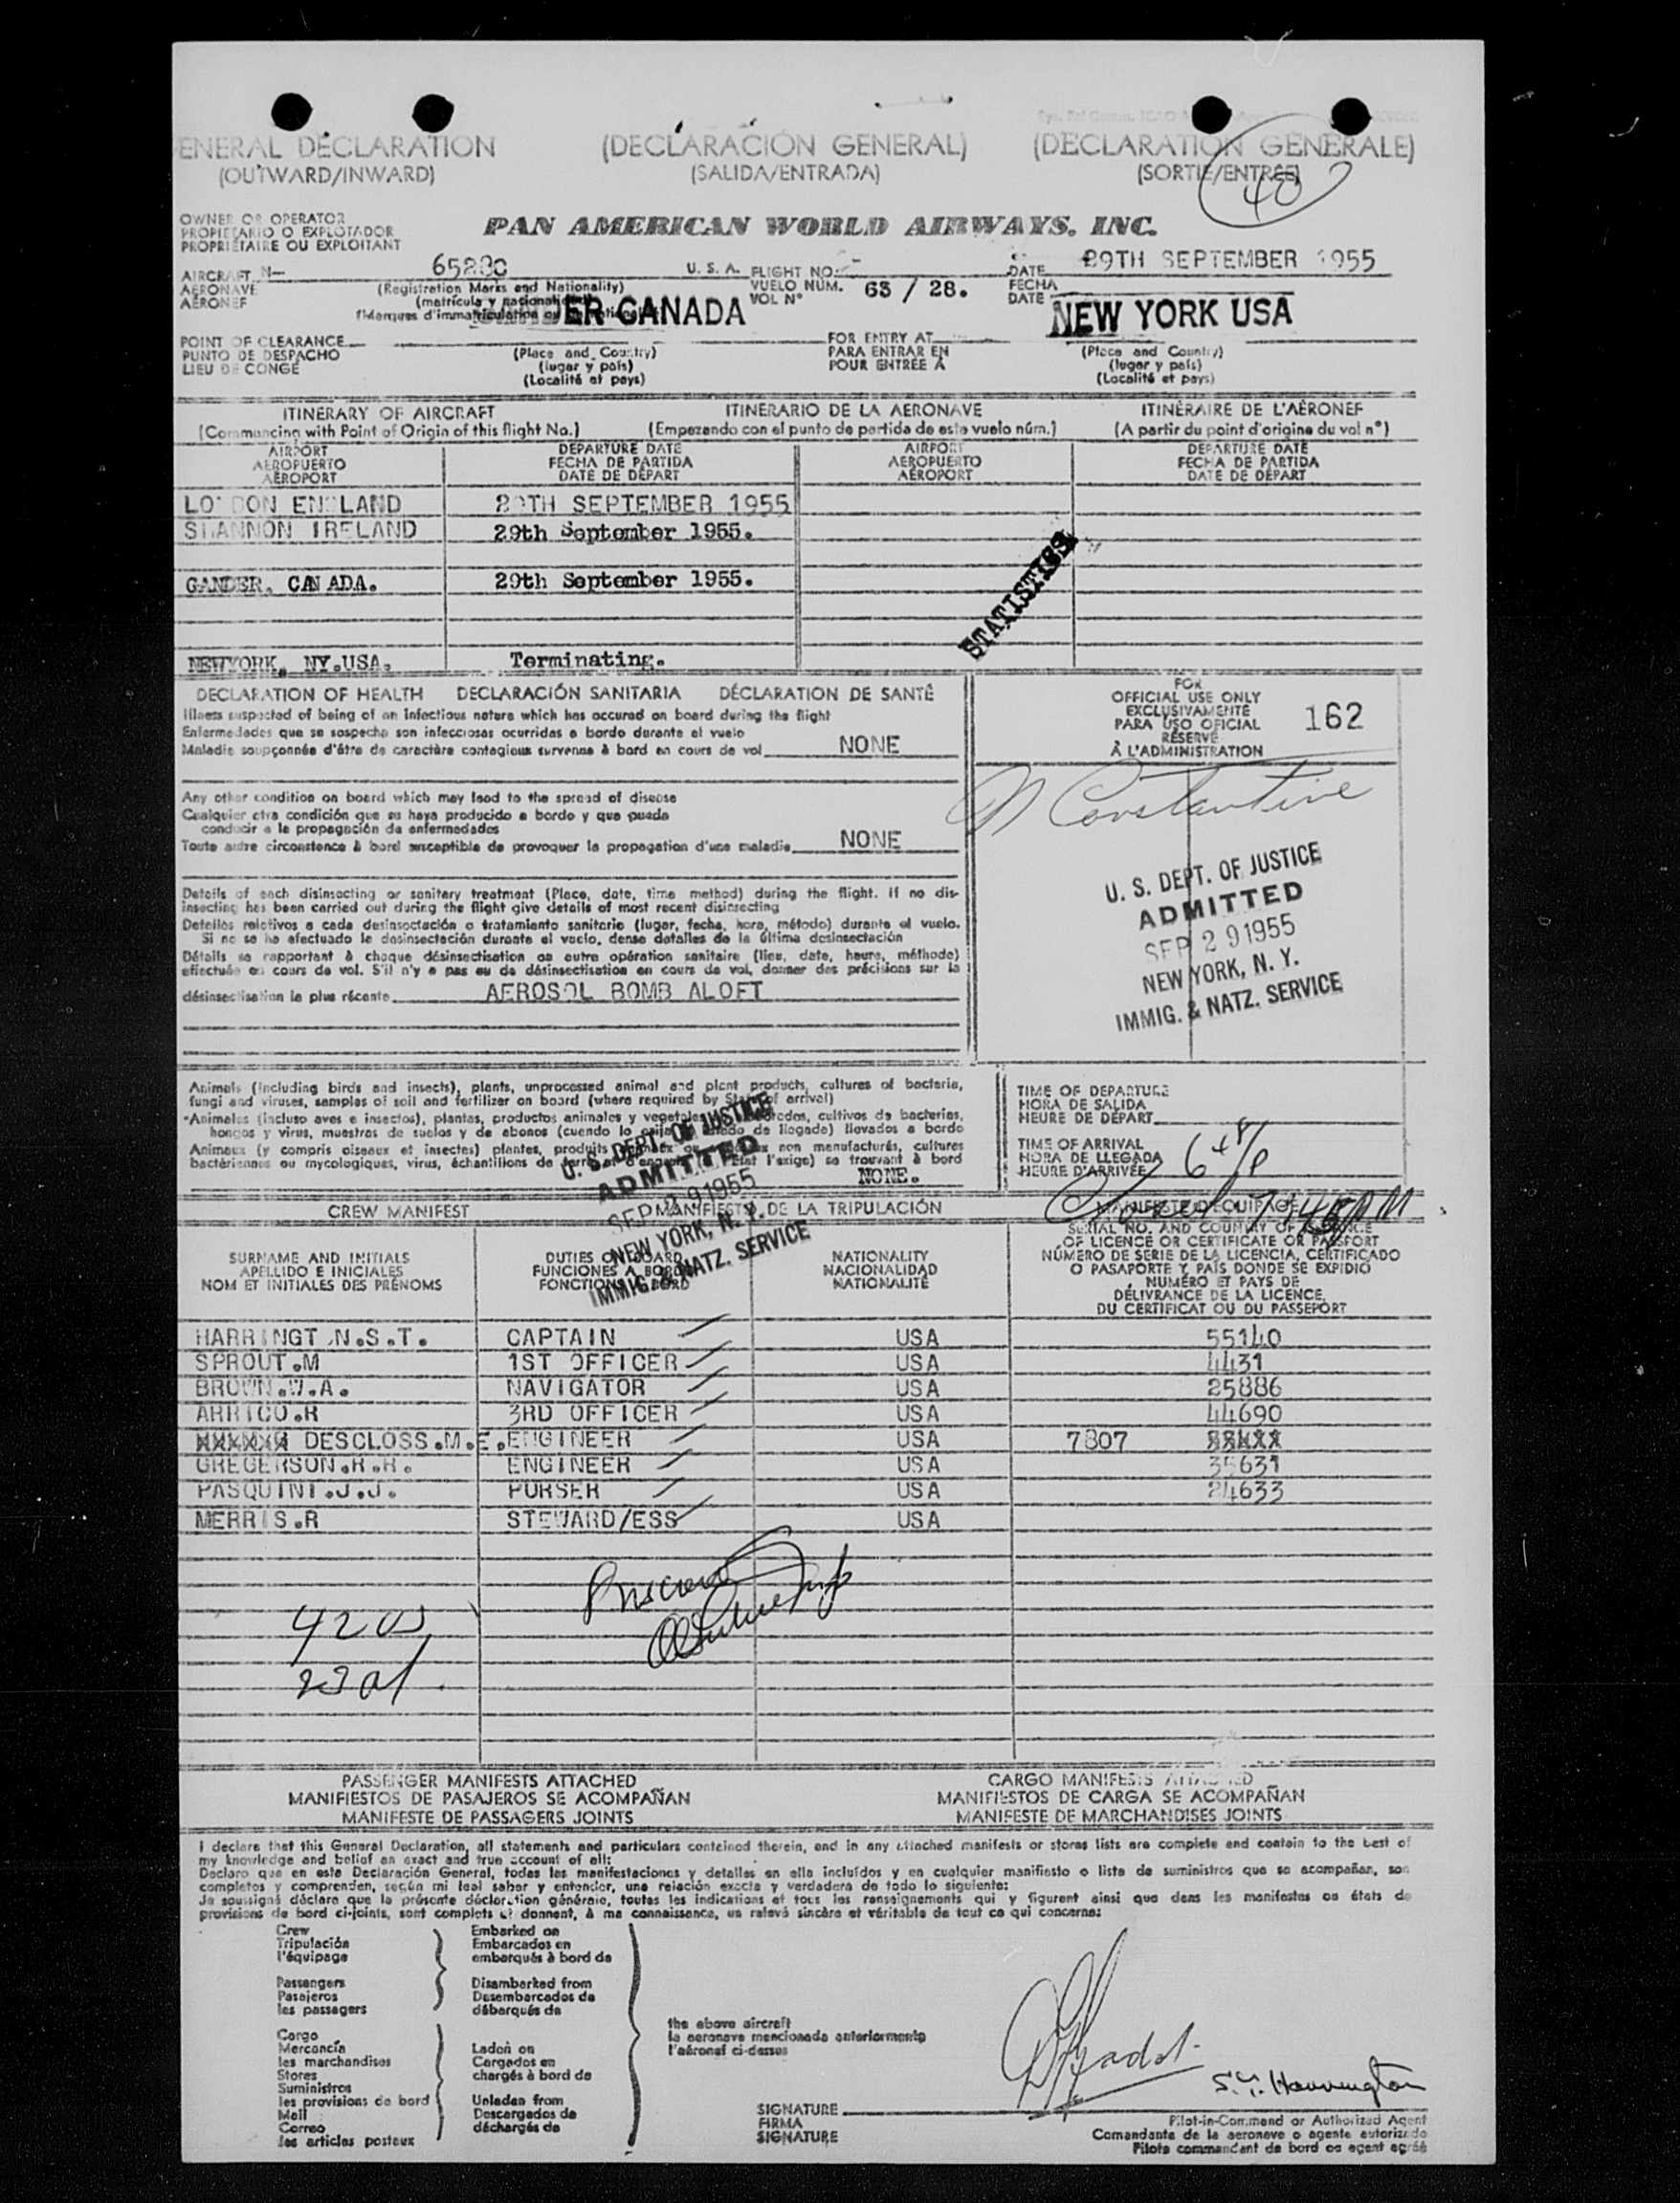 ENERAL DECLARATION (DECLARACIÓN GENERAL) (DECLARATION GENERALE)
(OUTWARD/INWARD) (SALIDA/ENTRADA) (SORTIE/ENTREE)
40
OWNER OR OPERATOR
PROPIETARIO O EXPLOTADOR
PROPRIÉTAIRE OU EXPLOITANT
PAN AMERICAN WORLD AIRWAYS, INC.
AIRCRAFT N— U. S. A. FLIGHT NO. DATE 29TH SEPTEMBER 1955
AERONAVE (Registration Marks and Nationality) VUELO NÚM. 63 / 28. FECHA
AÉRONEF VOL Nº DATE
ER CANADA NEW YORK USA
POINT OF CLEARANCE FOR ENTRY AT
PUNTO DE DESPACHO (Place and Country) PARA ENTRAR EN (Place and Country)
LIEU DE CONGÉ (lugar y país) POUR ENTRÉE À (lugar y país)
(Localité et pays) (Localité et pays)
ITINERARY OF AIRCRAFT ITINERARIO DE LA AERONAVE ITINÉRAIRE DE L'AÉRONEF
(Commencing with Point of Origin of this flight No.) (Empezando con el punto de partida de este vuelo núm.) (A partir du point d'origine du vol nº)
AIRPORT DEPARTURE DATE AIRPORT DEPARTURE DATE
AEROPUERTO FECHA DE PARTIDA AEROPUERTO FECHA DE PARTIDA
AÉROPORT DATE DE DÉPART AÉROPORT DATE DE DÉPART
LONDON ENGLAND 29TH SEPTEMBER 1955
SHANNON IRELAND 29th September 1955.
GANDER, CANADA. 29th September 1955.
STATISTICS
NEWYORK, NY.USA, Terminating.
DECLARATION OF HEALTH DECLARACIÓN SANITARIA DÉCLARATION DE SANTÉ
Illness suspected of being of an infectious nature which has occured on board during the flight
Enfermedades que se sospecha son infecciosas ocurridas a bordo durante el vuelo
Maladie soupçonnée d'être de caractère contagieux survenue à bord en cours de vol NONE
FOR
OFFICIAL USE ONLY
EXCLUSIVAMENTE
PARA USO OFICIAL
RÉSERVÉ
À L'ADMINISTRATION
162
Constantine
Any other condition on board which may lead to the spread of disease
Cualquier otra condición que se haya producido a bordo y que pueda
conducir a la propagación de enfermedades
Toute autre circonstance à bord susceptible de provoquer la propagation d'une maladie NONE
U. S. DEPT. OF JUSTICE
ADMITTED
SEP 29 1955
NEW YORK, N. Y.
IMMIG. & NATZ. SERVICE
Details of each disinsecting or sanitary treatment (Place, date, time method) during the flight. if no dis-
insecting has been carried out during the flight give details of most recent disinsecting
Detelles relativos a cada desinsectación o tratamiento sanitario (lugar, fecha, hora, método) durante el vuelo.
Si no se ha efectuado la desinsectación durante el vuelo, dense detalles de la última desinsectación
Détails se rapportant à chaque désinsectisation ou autre opération sanitaire (lieu, date, heure, méthode)
effectuée en cours de vol. S'il n'y a pas eu de désinsectisation en cours de vol, donner des précisions sur la
désinsectisation la plus récente AEROSOL BOMB ALOFT
Animals (including birds and insects), plants, unprocessed animal and plant products, cultures of bacteria,
fungi and viruses, samples of soil and fertilizer on board (where required by State of arrival)
Animales (incluso aves e insectos), plantas, productos animales y vegetales cultivos de bacterias,
hongos y virus, muestras de suelos y de abonos (cuando lo exija Estado de llegada) llevados a bordo
Animaux (y compris oiseaux et insectes) plantes, produits non manufacturés, cultures
bactériennes ou mycologiques, virus, échantillons de terre l'exige) se trouvant à bord
NONE.
TIME OF DEPARTURE
HORA DE SALIDA
HEURE DE DÉPART
TIME OF ARRIVAL
HORA DE LLEGADA
HEURE D'ARRIVÉE
U. S. DEPT. OF JUSTICE
ADMITTED
SEP 29 1955
NEW YORK, N. Y.
IMMIG. & NATZ. SERVICE
CREW MANIFEST MANIFIESTO DE LA TRIPULACIÓN MANIFESTE D'EQUIPAGE
SURNAME AND INITIALS
APELLIDO E INICIALES
NOM ET INITIALES DES PRÉNOMS
DUTIES ON BOARD
FUNCIONES A BORDO
FONCTIONS À BORD
NATIONALITY
NACIONALIDAD
NATIONALITÉ
SERIAL NO. AND COUNTRY OF
OF LICENCE OR CERTIFICATE OR PASSPORT
NÚMERO DE SERIE DE LA LICENCIA, CERTIFICADO
O PASAPORTE Y PAÍS DONDE SE EXPIDIÓ
NUMÉRO ET PAYS DE
DÉLIVRANCE DE LA LICENCE,
DU CERTIFICAT OU DU PASSEPORT
HARRINGT N.S.T. CAPTAIN USA 55140
SPROUT.M 1ST OFFICER USA 4431
BROWN.W.A. NAVIGATOR USA 25886
ARRICO.R 3RD OFFICER USA 44690
DESCLOSS.M.E. ENGINEER USA 7807
GREGERSON.R.R. ENGINEER USA 35631
PASQUINI.J.J. PURSER USA 24633
MERRIS.R STEWARD/ESS USA
PASSENGER MANIFESTS ATTACHED CARGO MANIFESTS ATTACHED
MANIFIESTOS DE PASAJEROS SE ACOMPAÑAN MANIFIESTOS DE CARGA SE ACOMPAÑAN
MANIFESTE DE PASSAGERS JOINTS MANIFESTE DE MARCHANDISES JOINTS
I declare that this General Declaration, all statements and particulars contained therein, and in any attached manifests or stores lists are complete and contain to the best of
my knowledge and belief an exact and true account of all:
Declaro que en esta Declaración General, todas las manifestaciones y detalles en ella incluídos y en cualquier manifiesto o lista de suministros que se acompañan, son
completos y comprenden, según mi leal saber y entender, una relación exacta y verdadera de todo lo siguiente:
Je soussigné déclare que la présente déclaration générale, toutes les indications et tous les renseignements qui y figurent ainsi que dans les manifestes ou états de
provisions de bord ci-joints, sont complets et donnent, à ma connaissance, un relevé sincère et véritable de tout ce qui concerne:
Crew Embarked on
Tripulación Embarcados en
l'équipage embarqués à bord de
Passengers Disembarked from
Pasajeros Desembarcados de
les passagers débarqués de
the above aircraft
la aeronave mencionada anteriormente
l'aéronef ci-dessus
Cargo
Mercancía Laden on
les marchandises Cargados en
Stores chargés à bord de
Suministros
les provisions de bord Unladen from
Mail Descargados de
Correo déchargés de
les articles postaux
S.T. Harrington
SIGNATURE
FIRMA
SIGNATURE
Pilot-in-Command or Authorized Agent
Comandante de la aeronave o agente autorizado
Pilote commandant de bord ou agent agréé